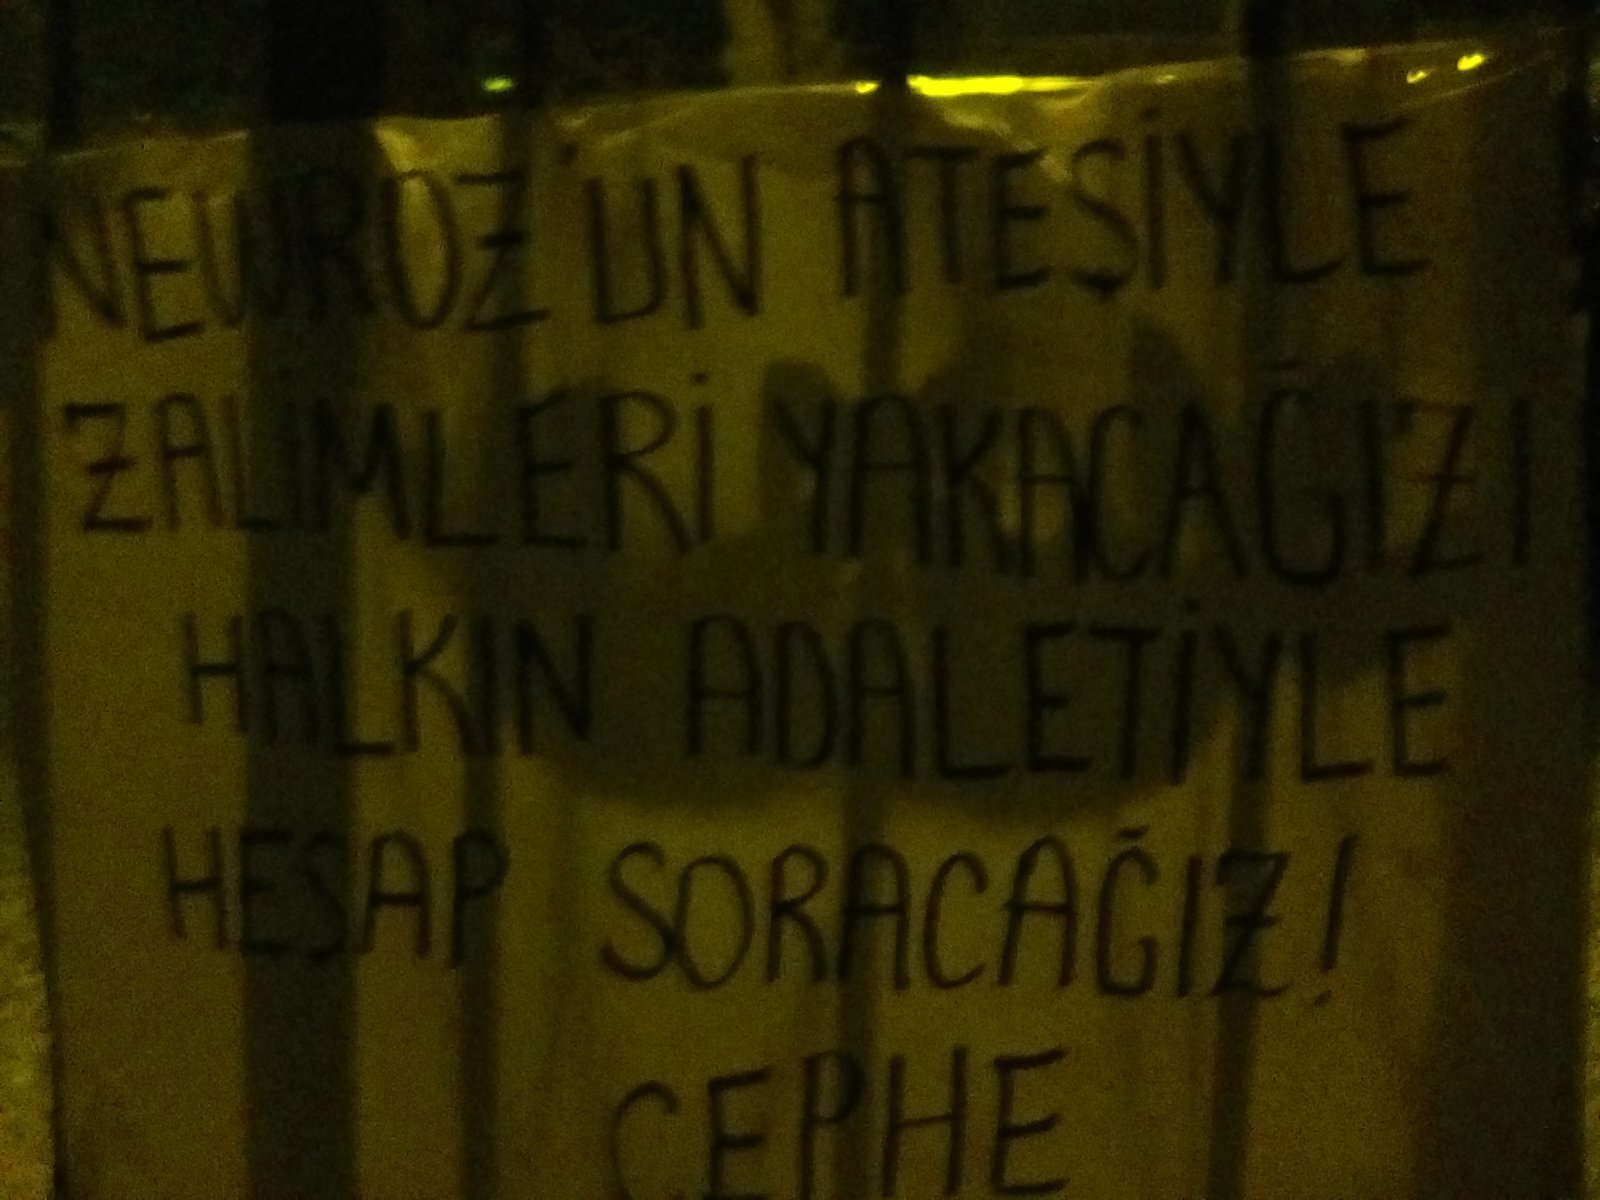 NEWROZ'UN ATEŞİYLE
ZALIMLERİ YAKACAĞIZ!
HALKIN ADALETİYLE
HESAP SORACAĞIZ!
CEPHE